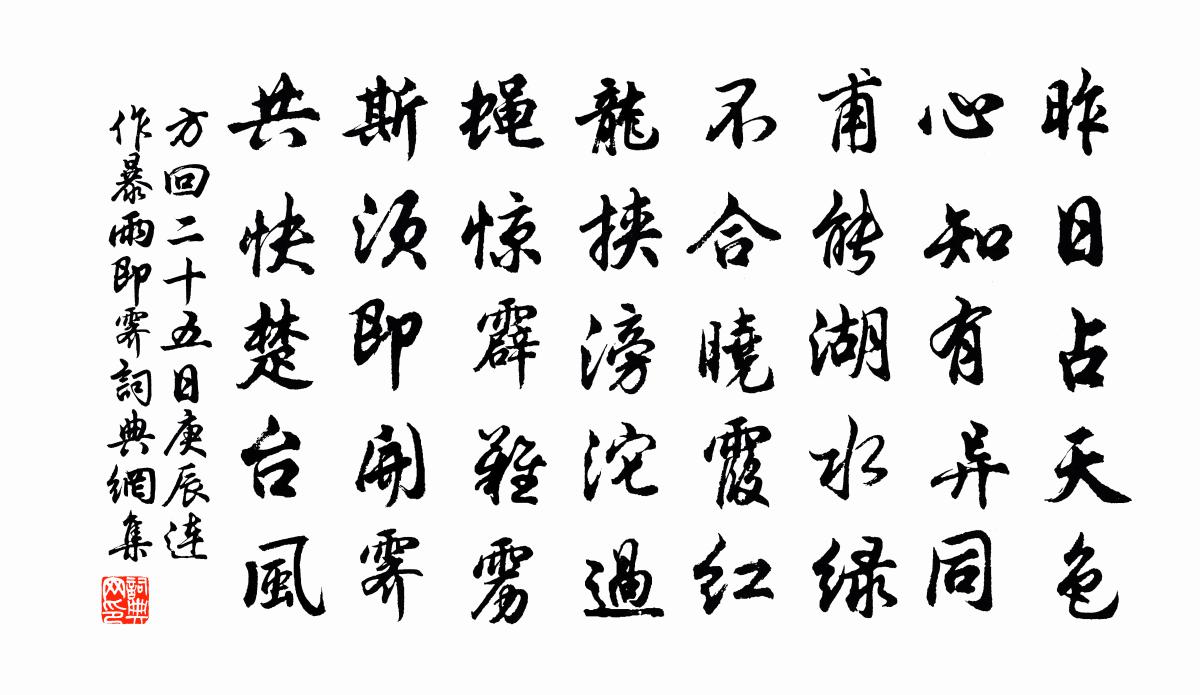 昨日占天色
心知有异同
甫能湖水绿
不合曉霞红
龍挟滂沱過
蝇惊霹雳
斯须即開霽
共快楚台風
方回二十五日庚辰连
作暴雨即霽詞典網集
詞典
网印